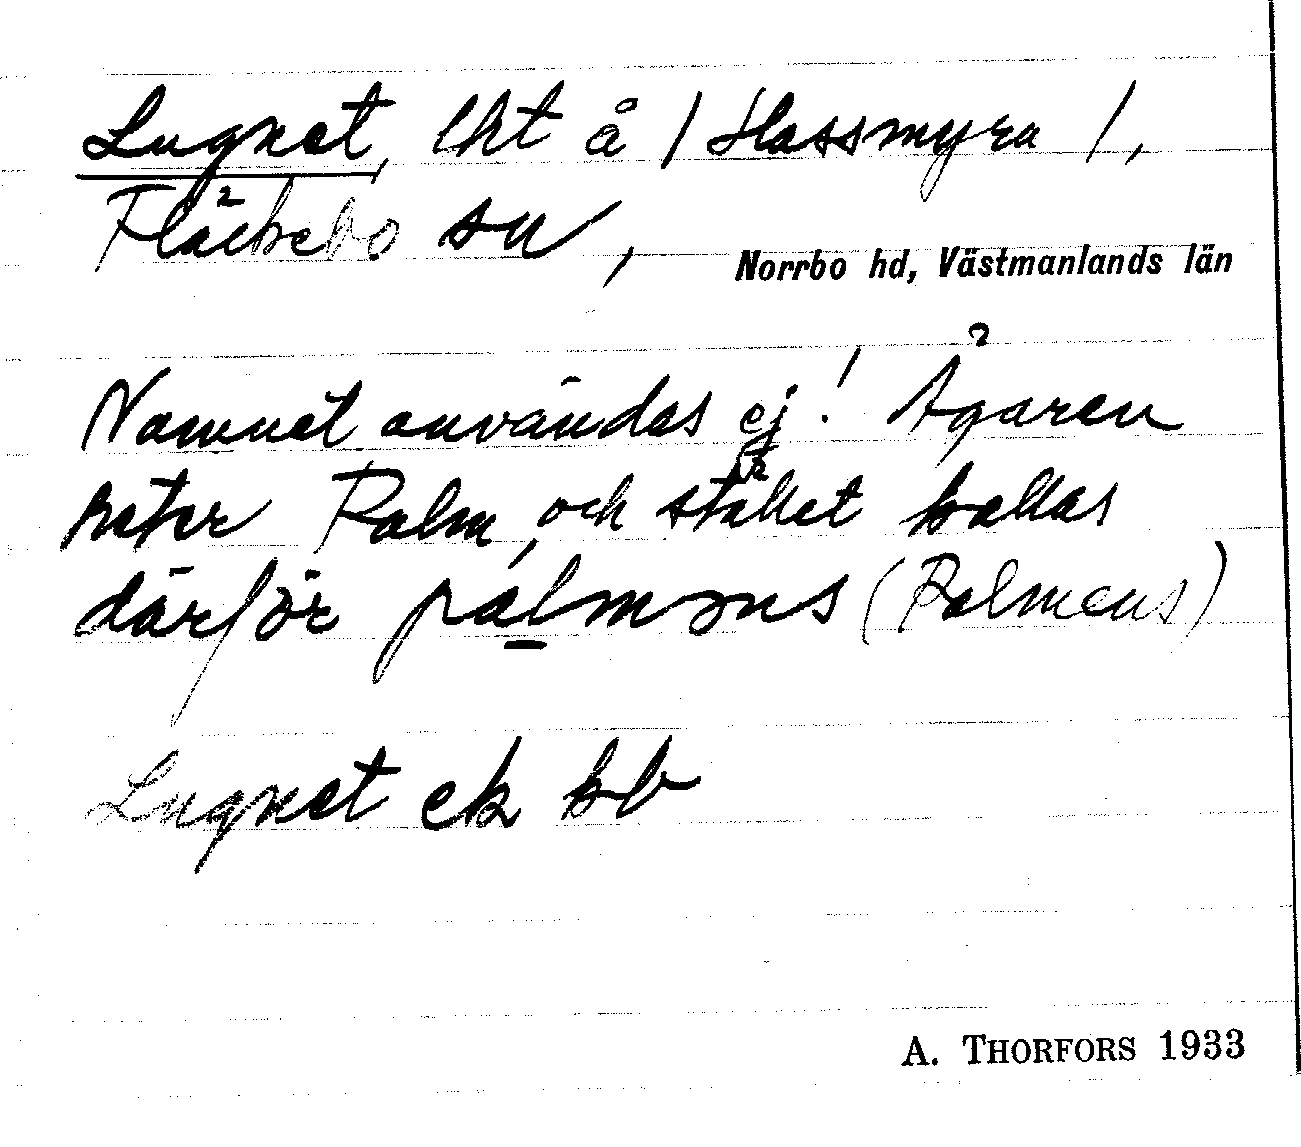 Lugnet, lht å / Hassmyra /,
Fläckebo sn,
Norrbo hd, Västmanlands län
Namnet användas ej! Ägaren
heter Palm, och stället kallas
därför pálmɘns (Palmens)
Lugnet ek kb
A. THORFORS 1933